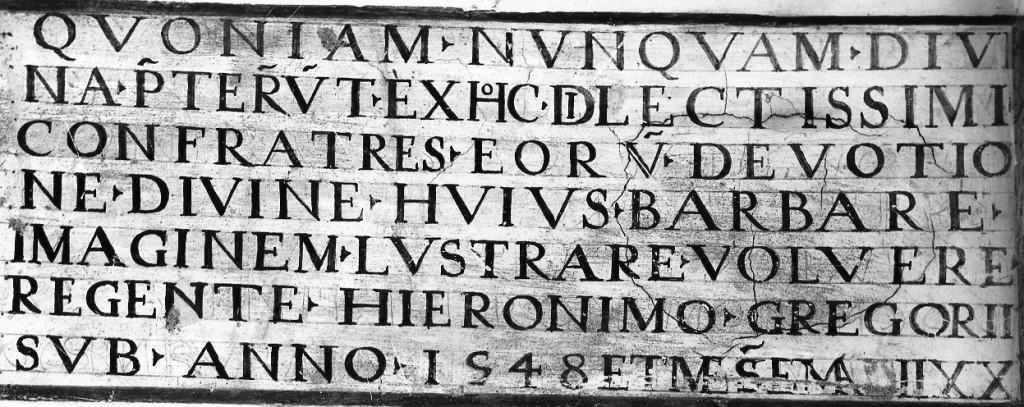 QVONIAM · NVNQVAM · DIVI
NA · P̃TER̃ṼT · EX HºC · DILECTISSIMI
CONFRATRES · EORṼ · DEVOTIO
NE · DIVINE · HVIVS · BARBARE ·
IMAGINEM · LVSTRARE · VOLVERE
REGENTE · HIERONIMO · GREGORII
SVB · ANNO · 1548 ET M̃S̃E MA IIXX